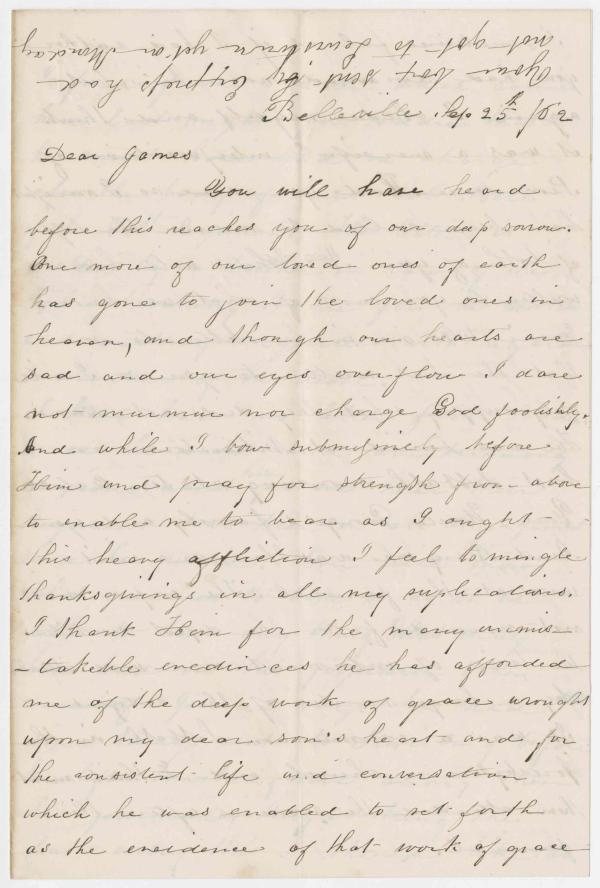 Your box sent by Express had
not got to Lewistown yet on Monday
Belleville Sep 25th /62
Dear James
You will have heard
before this reaches you of our deep sorrow.
One more of our loved ones of earth
has gone to join the loved ones in
heaven, and though our hearts are
sad and our eyes overflow I dare
not murmur nor charge God foolishly.
And while I bow submissively before
Him and pray for strength from above
to enable me to bear as I ought
this heavy affliction I feel to mingle
thanksgivings in all my suplications.
I thank Him for the many unmis-
-takeble evedinces he has afforded
me of the deep work of grace wrought
upon my dear son's heart and for
the consistent life and conversation
which he was enabled to set forth
as the eveidence of that work of grace